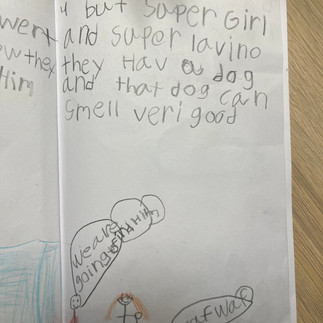 u but Super Girl
and super lavino
they Hav a dog
and that dog can
smell veri good
went
Him
we are
going
Him
waf